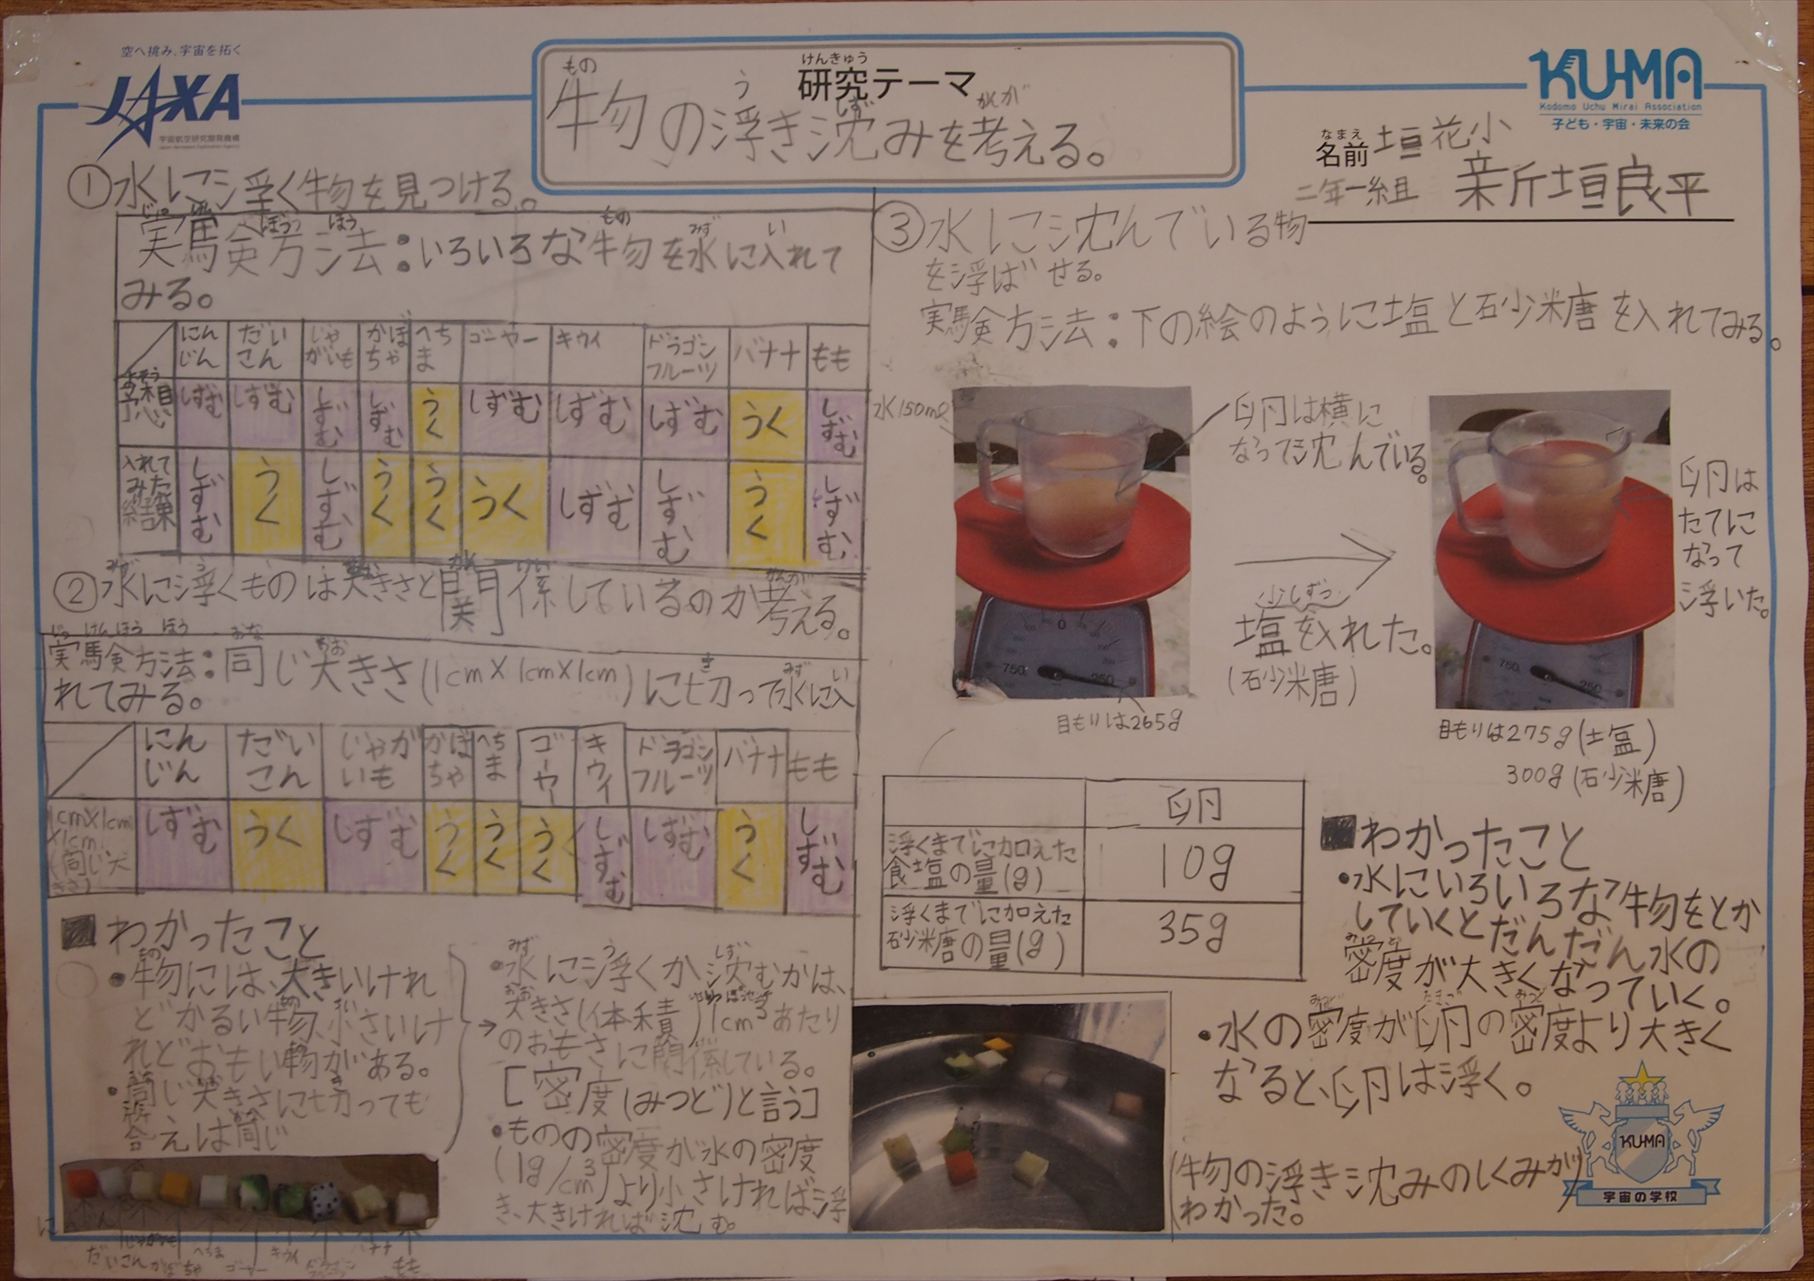 空へ挑み、宇宙を拓く
JAXA
宇宙航空研究開発機構
Japan Aerospace Exploration Agency
けんきゅう
研究テーマ
もの う しず かんが
物の浮き沈みを考える。
KUMA
Kodomo Uchu Mirai Association
子ども・宇宙・未来の会
なまえ
名前 垣花小
二年一組 新垣良平
①水に浮く物を見つける。
実験方法:いろいろな物を水に入れて
みる。
にんじん だいこん じゃがいも かぼちゃ へちま ゴーヤー キウイ ドラゴンフルーツ バナナ もも
予想 しずむ しずむ しずむ しずむ うく しずむ しずむ しずむ うく しずむ
入れてみた結果 しずむ うく しずむ うく うく うく しずむ しずむ うく しずむ
②水に浮くものは大きさと関係しているのか考える。
実験方法:同じ大きさ(1cm×1cm×1cm)に切って水に入
れてみる。
にんじん だいこん じゃがいも かぼちゃ へちま ゴーヤー キウイ ドラゴンフルーツ バナナ もも
1cm×1cm×1cm(同じ大きさ) しずむ うく しずむ うく うく うく しずむ しずむ うく しずむ
■わかったこと
・物には、大きいけれ
どかるい物、小さいけ
れどおもい物がある。
・同じ大きさに切っても
答えは同じ
・水に浮くか、沈むかは、
大きさ(体積)1cm³あたり
のおもさに関係している。
[密度(みつど)と言う]
・ものの密度が水の密度
(1g/cm³)より小さければ浮
き、大きければ沈む。
だいこん かぼちゃ へちま ゴーヤー キウイ バナナ もも
③水に沈んでいる物
を浮ばせる。
実験方法:下の絵のように塩と砂糖を入れてみる。
水150mℓ
卵は横に
なって沈んでいる。
少しずつ
塩を入れた。
(砂糖)
卵は
たてに
なって
浮いた。
0
750
250
750
250
目もりは265g
目もりは275g(塩)
300g(砂糖)
卵
浮くまでに加えた
食塩の量(g) 10g
浮くまでに加えた
砂糖の量(g) 35g
■わかったこと
・水にいろいろな物をとか
していくとだんだん水の
密度が大きくなっていく。
・水の密度が卵の密度より大きく
なると、卵は浮く。
(物の浮き沈みのしくみが
わかった。
KUMA
宇宙の学校